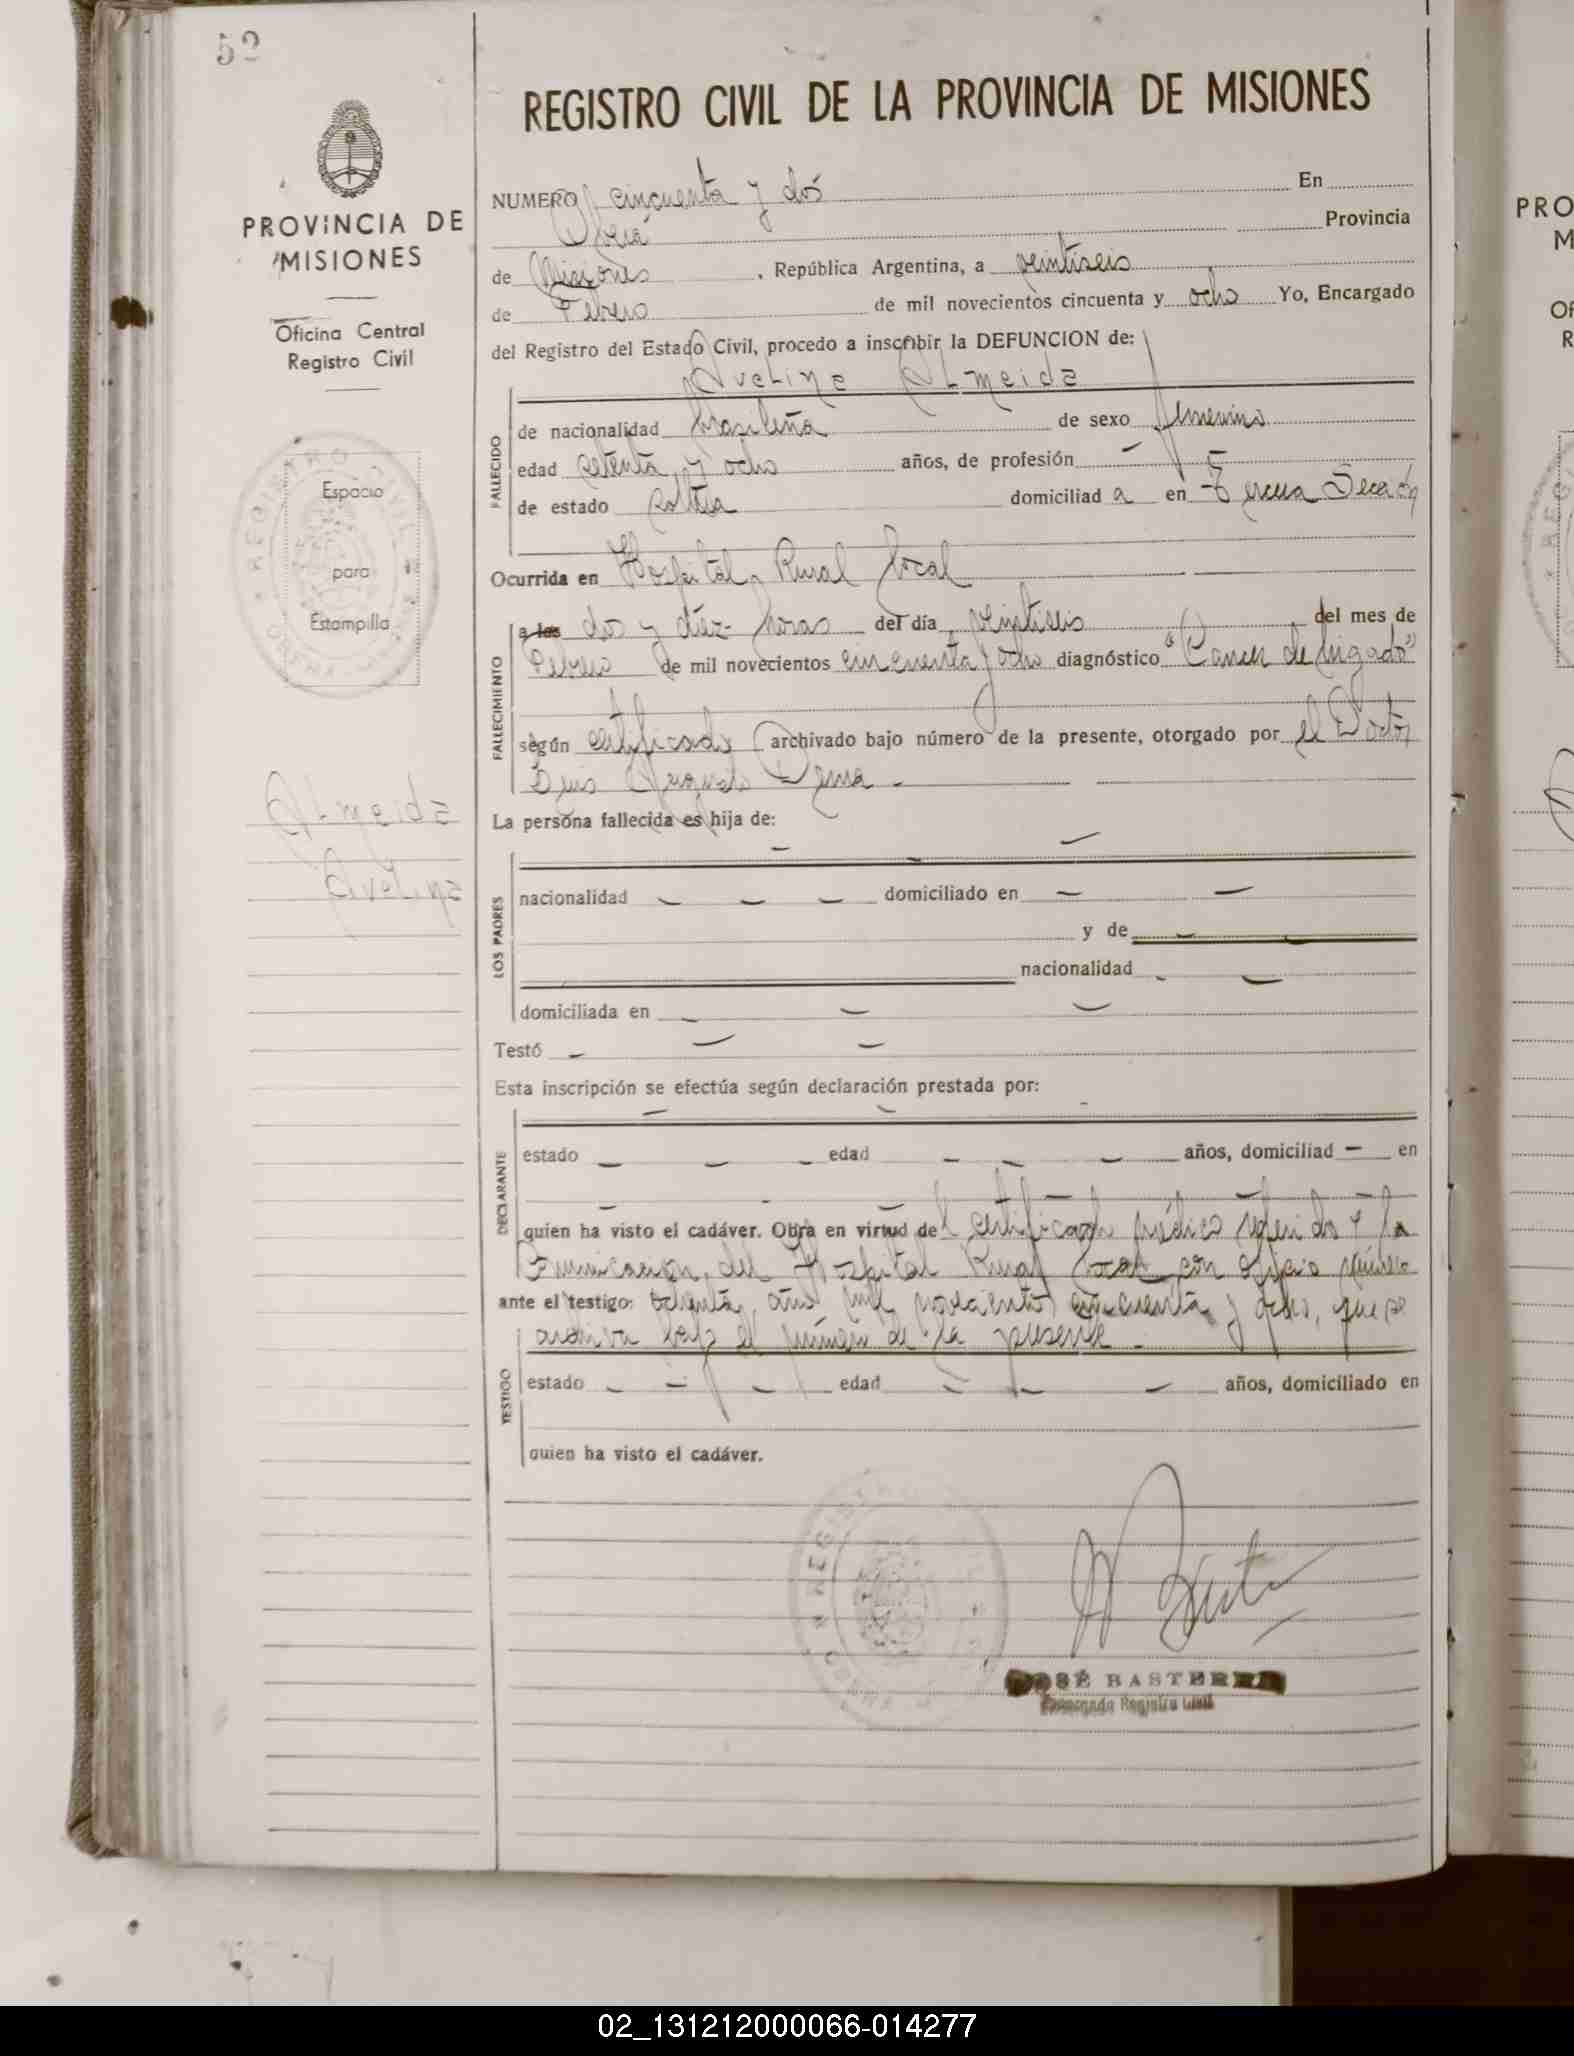 52
REGISTRO CIVIL DE LA PROVINCIA DE MISIONES
PROVINCIA DE
MISIONES
Oficina Central
Registro Civil
Espacio
para
Estampilla
Almeida
Avelina
NUMERO cincuenta y dós En
Oberá Provincia
de Misiones , República Argentina, a veintiseis
de Febrero de mil novecientos cincuenta y ocho Yo, Encargado
del Registro del Estado Civil, procedo a inscribir la DEFUNCION de:
Avelina Almeida
FALLECIDO
de nacionalidad brasileña de sexo femenino
edad setenta y ocho años, de profesión —
de estado soltera domiciliad a en Tercera Sección
Ocurrida en Hospital Rural local
FALLECIMIENTO
a las dos y diez horas del día veintiseis del mes de
Febrero de mil novecientos cincuenta y ocho diagnóstico "Cancer de higado"
según certificado archivado bajo número de la presente, otorgado por el Doctor
Luis Augusto Derna
La persona fallecida es hija de:
LOS PADRES
nacionalidad — — — domiciliado en — —
y de —
nacionalidad — —
domiciliada en — — —
Testó — — —
Esta inscripción se efectúa según declaración prestada por:
DECLARANTE
estado — — — edad — — — años, domiciliad — en
quien ha visto el cadáver. Obra en virtud del certificado médico referido y la
comunicación del Hospital Rural local con oficio número
ante el testigo: ochenta, año mil novecientos cincuenta y ocho, que se
archiva bajo el número de la presente -
TESTIGO
estado — — — edad — — — años, domiciliado en
quien ha visto el cadáver.
JOSÉ BASTERRA
Encargado Registro Civil
PRO
M
Of
R
02_131212000066-014277